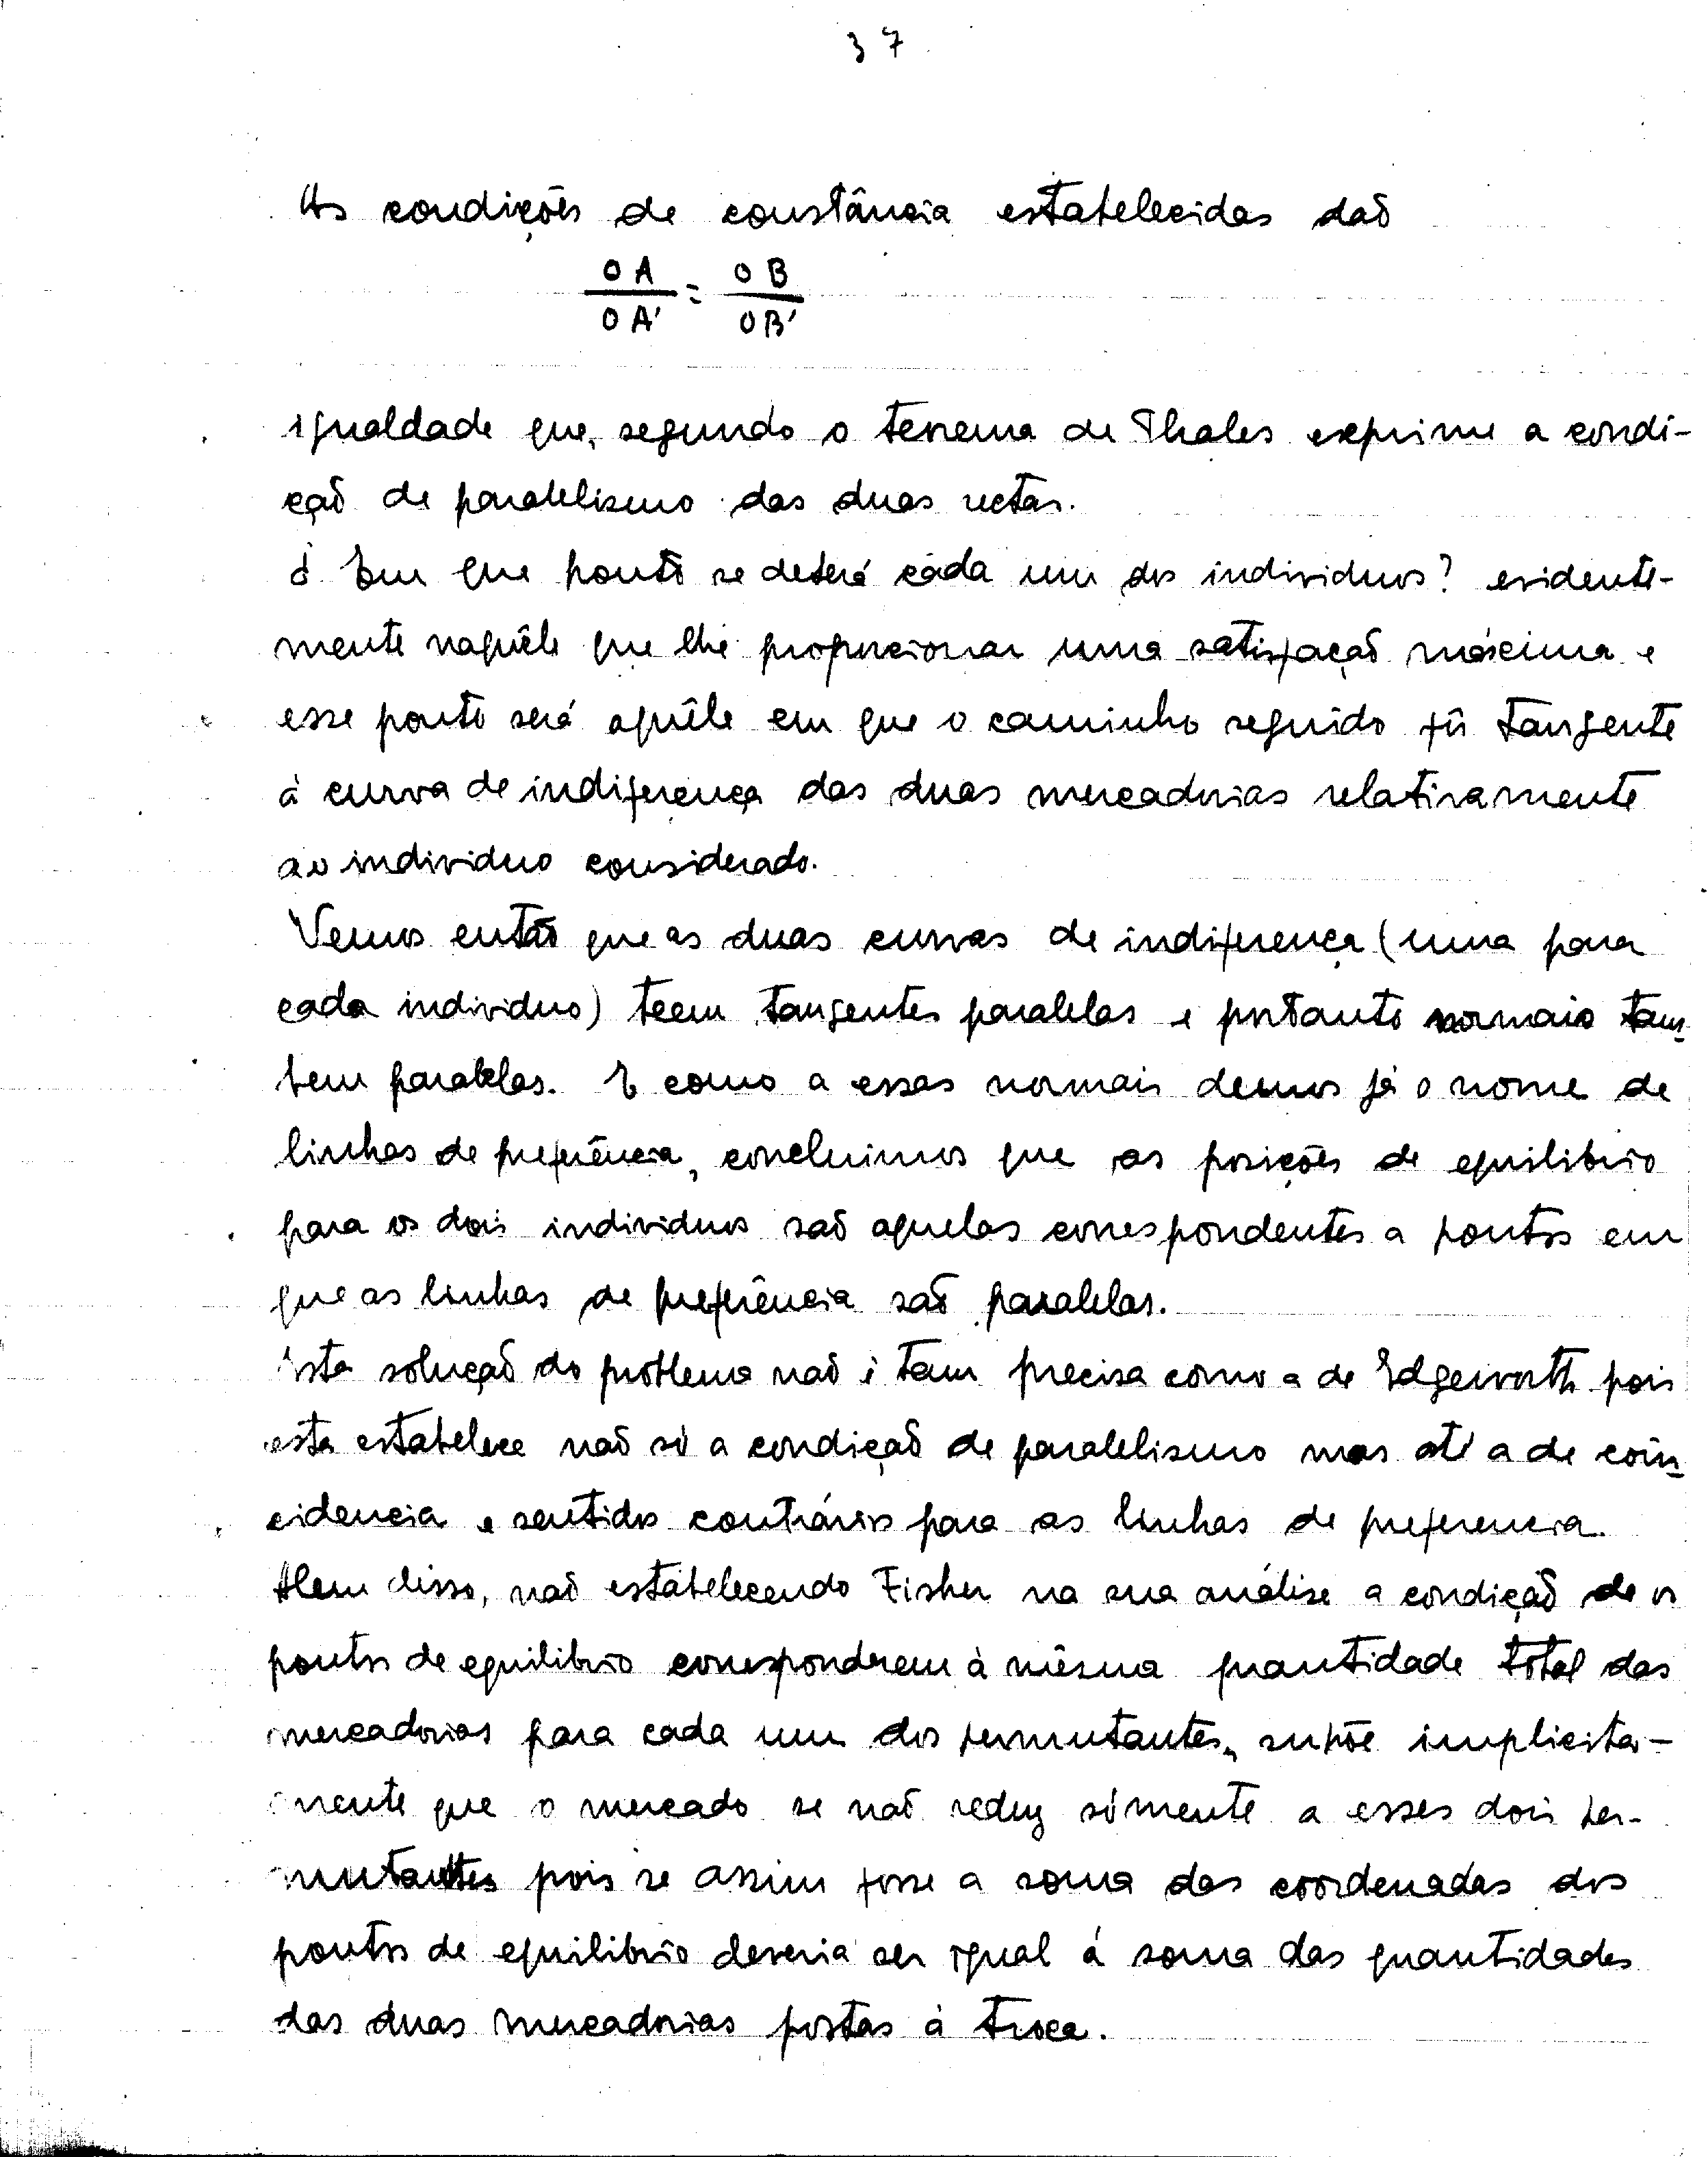 37
As condições de constância estabelecidas dão
OA/OA' = OB/OB'
igualdade que, segundo o teorema de Thales exprime a condi-
ção de paralelismo das duas rectas.
¿ Em que ponto se deterá cada um dos individuos? evidente-
mente naquêle que lhe proporcionar uma satisfação máxima e
esse ponto será aquêle em que o caminho seguido fôr tangente
á curva de indiferença das duas mercadorias relativamente
ao individuo considerado.
Vemos então que as duas curvas de indiferença (uma para
cada individuo) teem tangentes paralelas e portanto normais tam-
bem paralelas. E como a essas normais demos já o nome de
linhas de preferência, concluimos que as posições de equilibrio
para os dois individuos são aquelas correspondentes a pontos em
que as linhas de preferência são paralelas.
Esta solução do problema não é tam precisa como a de Edgeworth pois
esta estabelece não só a condição de paralelismo mas até a de coin-
cidencia e sentidos contrários para as linhas de preferencia.
Alem disso, não estabelecendo Fisher na sua análise a condição de os
pontos de equilibrio corresponderem à mêsma quantidade total das
mercadorias para cada um dos permutantes, supõe implicita-
mente que o mercado se não reduz sómente a esses dois per-
mutantes pois se assim fosse a soma das coordenadas dos
pontos de equilibrio deveria ser igual á soma das quantidades
das duas mercadorias postas à troca.